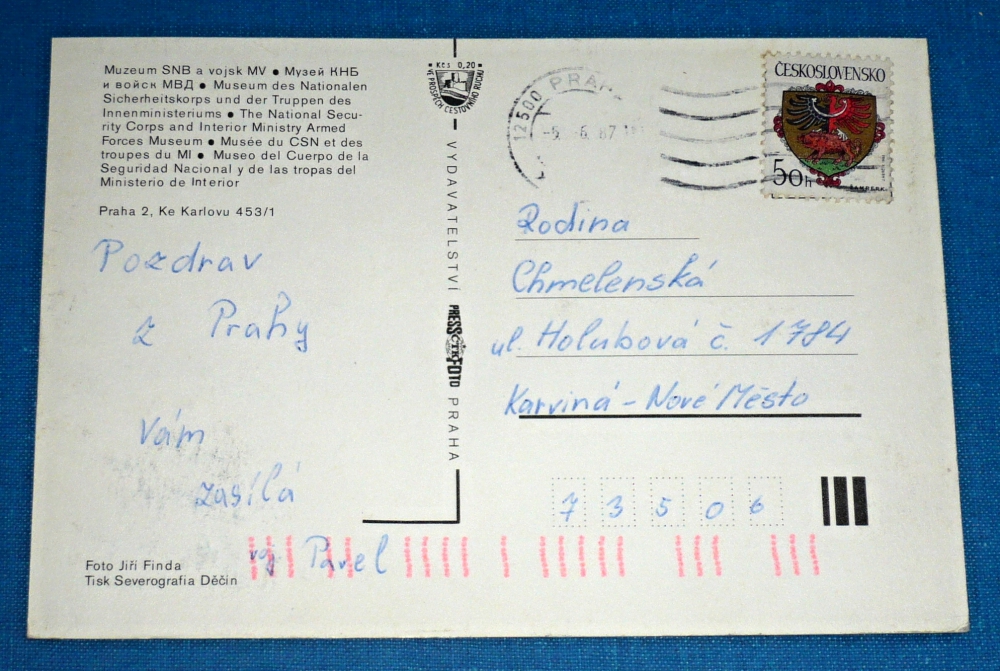 Muzeum SNB a vojsk MV ● Музей КНБ
и войск МВД ● Museum des Nationalen
Sicherheitskorps und der Truppen des
Innenministeriums ● The National Secu-
rity Corps and Interior Ministry Armed
Forces Museum ● Musée du CSN et des
troupes du MI ● Museo del Cuerpo de la
Seguridad Nacional y de las tropas del
Ministerio de Interior
Praha 2, Ke Karlovu 453/1
Pozdrav
z Prahy
Vám
zasílá
Pavel
Foto Jiří Finda
Tisk Severografia Děčín
Kčs 0,20
VE PROSPĚCH CESTOVNÍHO RUCHU
VYDAVATELSTVÍ PRESSFOTO PRAHA
ČTK
12500 PRAHA
-5.-6.87
ČESKOSLOVENSKO
50h
ŽAMBERK
Rodina
Chmelenská
ul. Holubová č. 1784
Karviná - Nové Město
73506